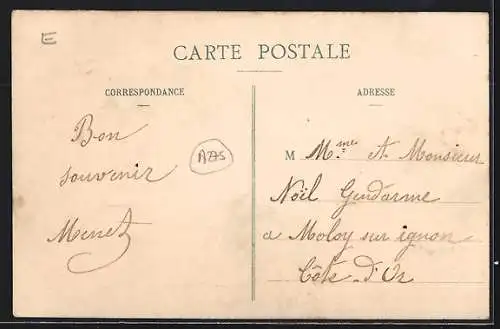 E
CARTE POSTALE
CORRESPONDANCE
ADRESSE
Bon
souvenir
Menet
A775
M Mme et Monsieur
Noël Gendarme
a Moloy sur ignon
Côte d'Or